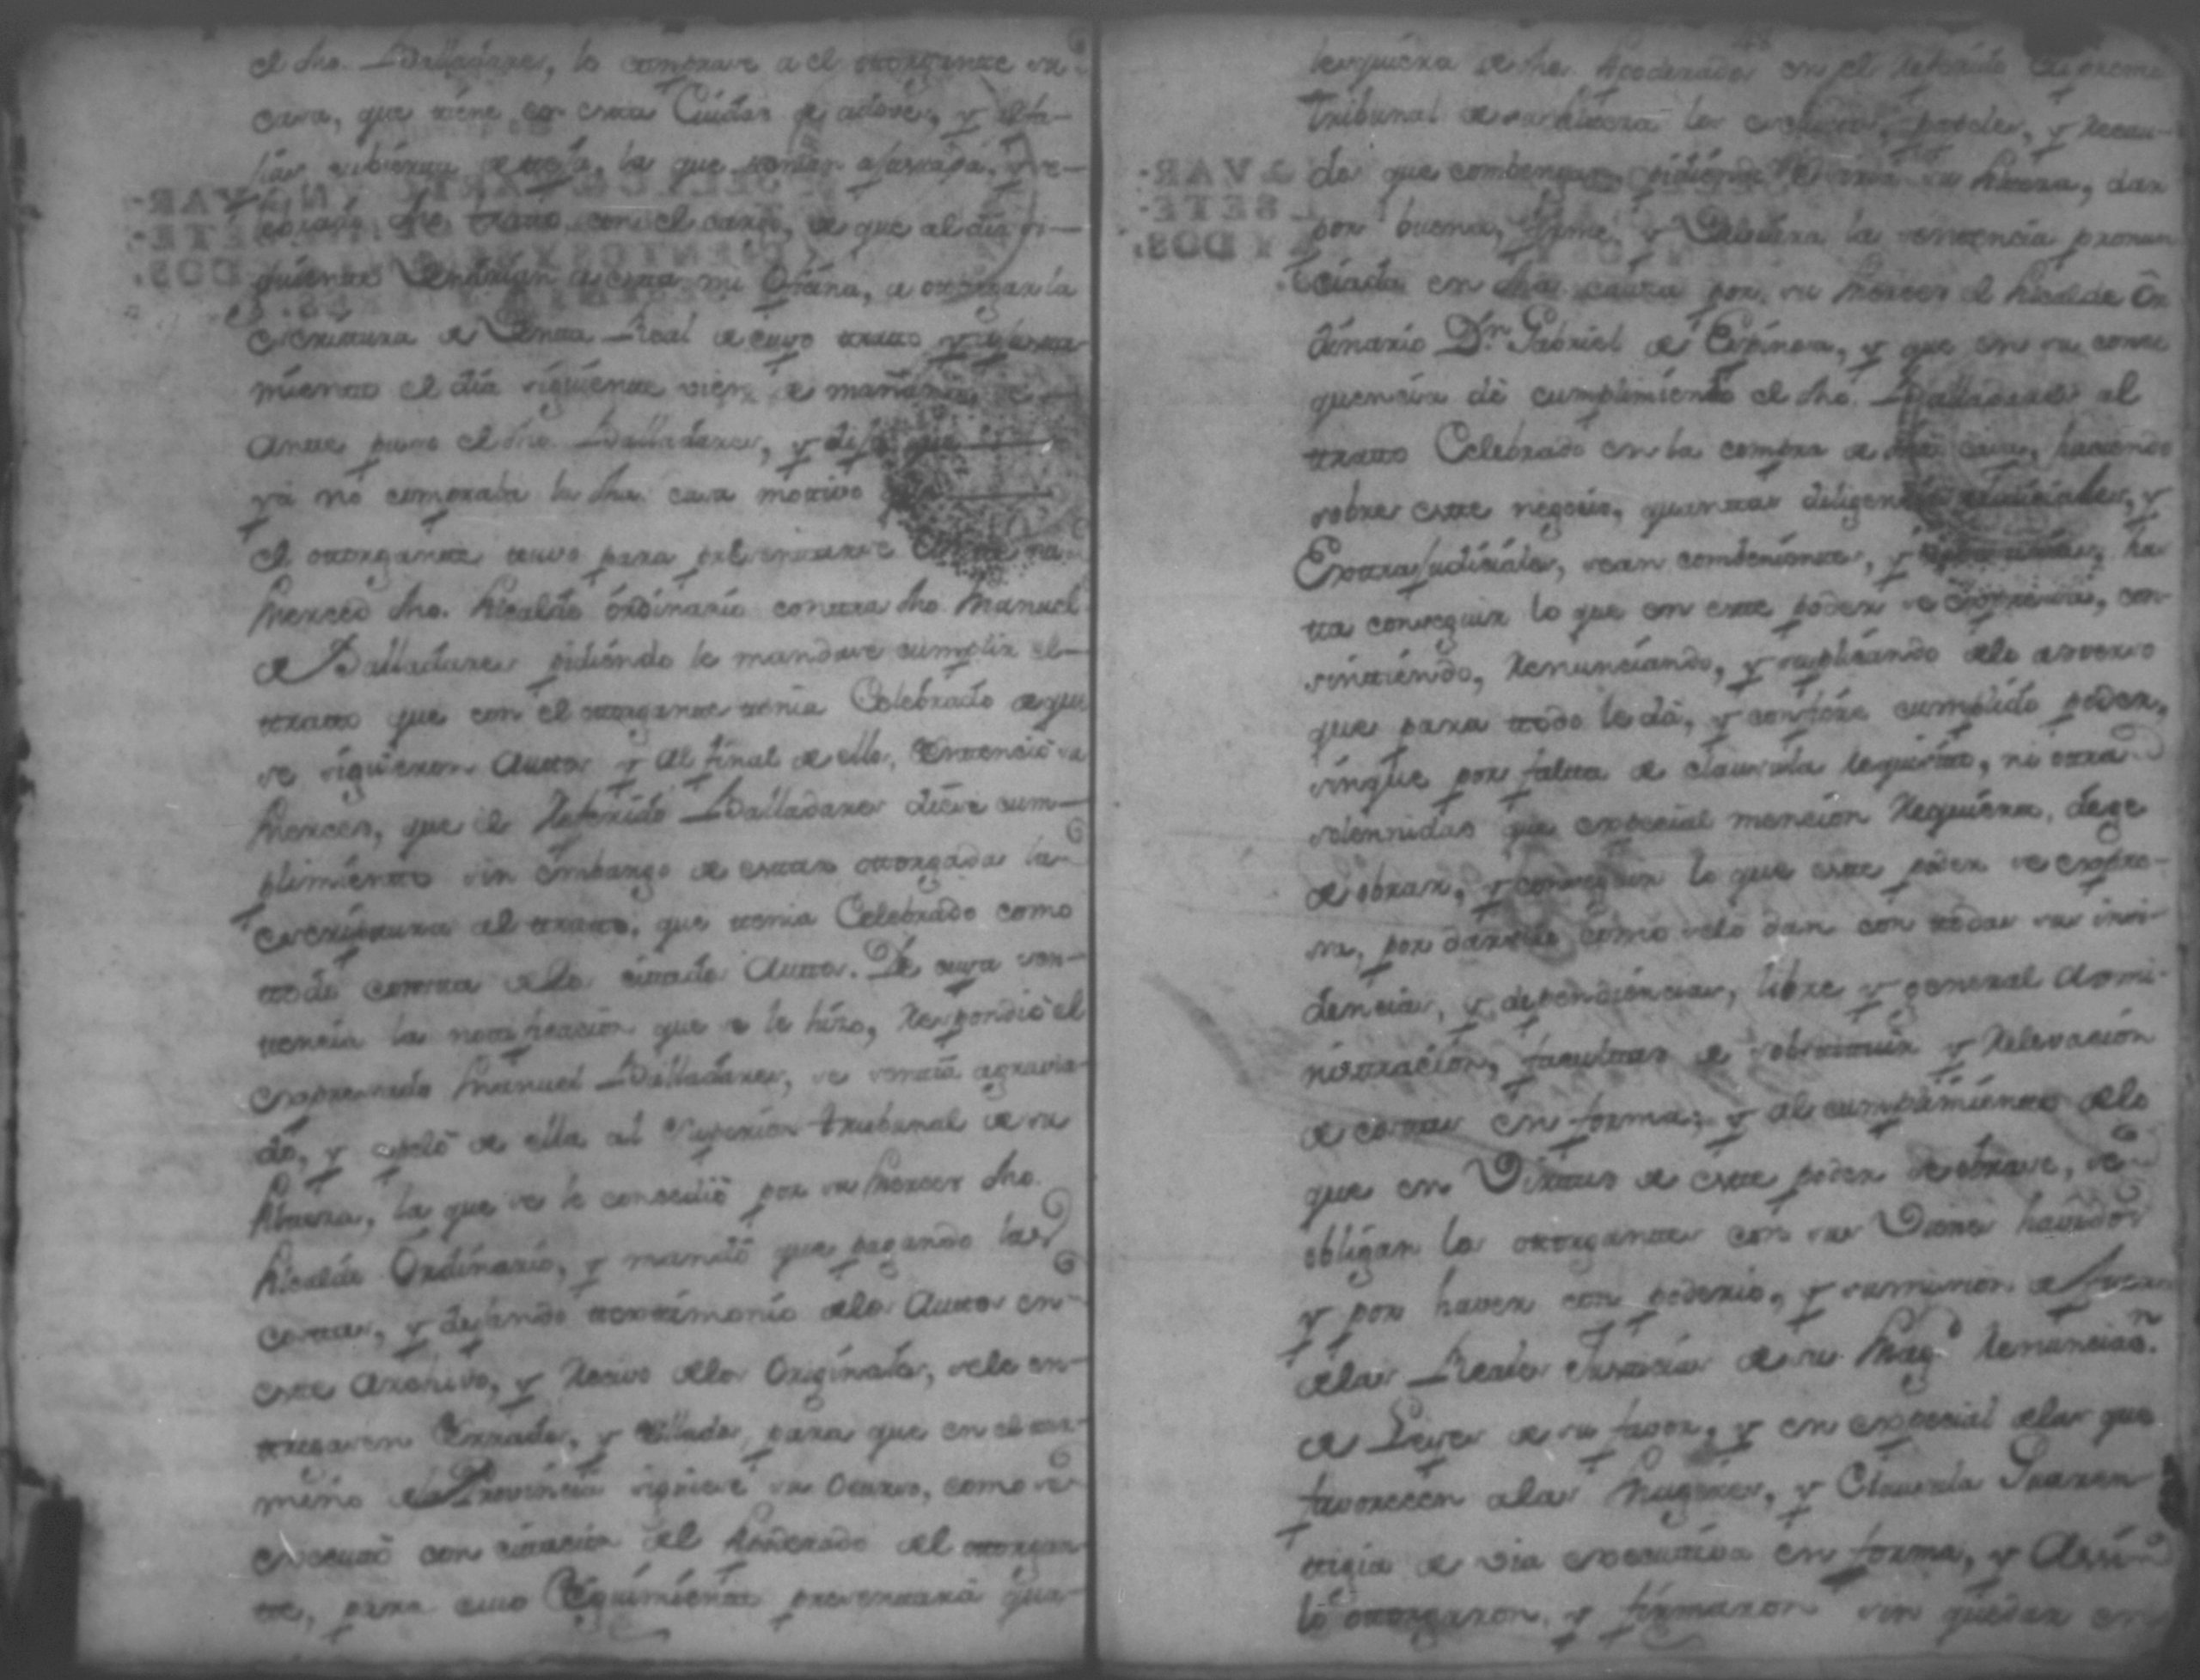 el dho. Balladares, le comprase a el otorgante su
casa, que tiene en esta Ciudad de adoves, y
cubierta de teja, la que
dho. tratto con el cargo, de que al dia si-
guiente Vendrian a esta mi Ofizina, a otorgar la
escrittura de Venta Real de cuyo tratto
miento el dia siguiente bien de mañana se
ante puso el dho. Balladares, y dijo que
ya no compraba la dha. casa motivo que
el otorgante tuvo para presentarse ante su
Merced dho. Alcalde ordinario contra dho. Manuel
de Balladares pidiendo le mandase cumplir el
tratto que con el otorgante tenia Celebrado de que
se siguieron Auttos y al final de ellos, Sentenció su
Merced, que el Referido Balladares diese cum-
plimiento sin embargo de estar otorgada la
escriptura al tratto, que tenia Celebrado como
todo consta de los citados Auttos. De cuya sen-
tencia la notificacion que se le hizo, Respondió el
expresado Manuel Balladares, se sentia agravia-
do, y apeló de ella al Superior tribunal de su
Alteza, la que se le concedió por su Merced dho.
Alcalde Ordinario, y mandó que pagando las
costas, y dejando testimonio de los Auttos en
este Archivo, y Recivo de los Originales, se le en-
tregasen Serrados, y Sellados, para que en el ter-
mino de la Provincia siguiese su Ocurso, como se
executó con citacion del Apoderado del otorgan-
te, para cuio Seguimiento presentará qua-
lesquiera de dho. Apoderados en el Referido Supremo
Tribunal de su Alteza los escritos, papeles, y Recau-
dos que combengan, pidiendo se sirva su Alteza, dar
por buena, firme, y Valedera la sentencia pronun
ciada en dha. causa por su Merced el Alcalde Or
dinario Dn. Gabriel de Espinosa, y que en su conse
quencia dé cumplimiento el dho. Balladares al
tratto Celebrado en la compra de dha. casa, haciendo
sobre este negocio, quantas diligencias Judiciales, y
Extrajudiciales, sean combenientes, y has
ta conseguir lo que en este poder se expresa, con-
sintiendo, Renunciando, y suplicando de lo adverso
que para todo le dá, y confiere cumplido poder,
sin que por falta de clausula requisito, ni otra
solemnidad que especial mencion Requiera, deje
de obrar, y conseguir lo que este poder se expre-
sa, por darsele como se lo dan con todas sus inci-
dencias, y dependencias, libre y general Admi-
nistracion, facultad de sobstituir y Relevacion
de costas en forma; y al cumplimiento de lo
que en Virtud de este poder se obrase, se
obligan los otorgantes con sus Vienes havidos
y por haver con poderio, y sumision de fuero
a las Reales Justicias de su Magd. renunciacn.
de Leyes de su favor, y en especial de las que
favorecen a las Mugeres, y Clausula Guaren
tigia de via executiva en forma, y Asi
lo otorgaron, y firmaron sin quedar en